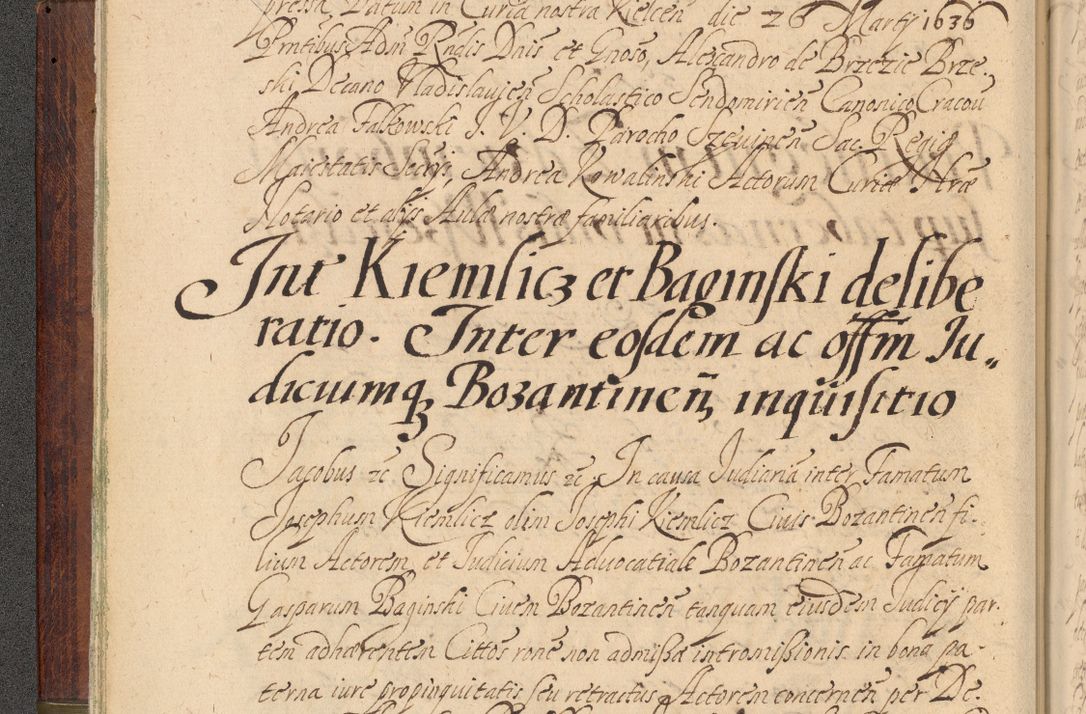 pressa Datum in Curia nostra Kielcen die 26 Martÿ 1636
Pntibus Adm Rndis Dnis et Gnoso, Alexandro de Brzezie Brze.
ski Decano Vladislauien Scholastico Sendomirien Canonico Cracou
Andrea Falkowski I. V. D. Parocho Szeuinen Sac. Regię
Maiestatis Secrrs, Andrea Kowalinski Actorum Curiæ Nræ
Notario et alÿs Aulæ nostræ familiaribus.
Int Kiemlicz et Baginski delibe
ratio. Inter eosdem ac offm Iu„
diciumq Bozantinen inquisitio
Jacobus zc Significamus zc In causa Iudiaria inter Famatum
Josephum Kiemlicz olim Josephi Kiemlicz Ciuis Bozantinen fi.
lium Actorem, et Iudicium Aduocatiale Bozantinen ac Famatum
Gasparum Baginski Ciuem Bozantinen tanquam eiusdem Iudicÿ par.
tem adhærentem Cittos rone non admissæ intromissionis in bona pa.
terna iure propinquitatis seu retractus Actorem concernen per De.